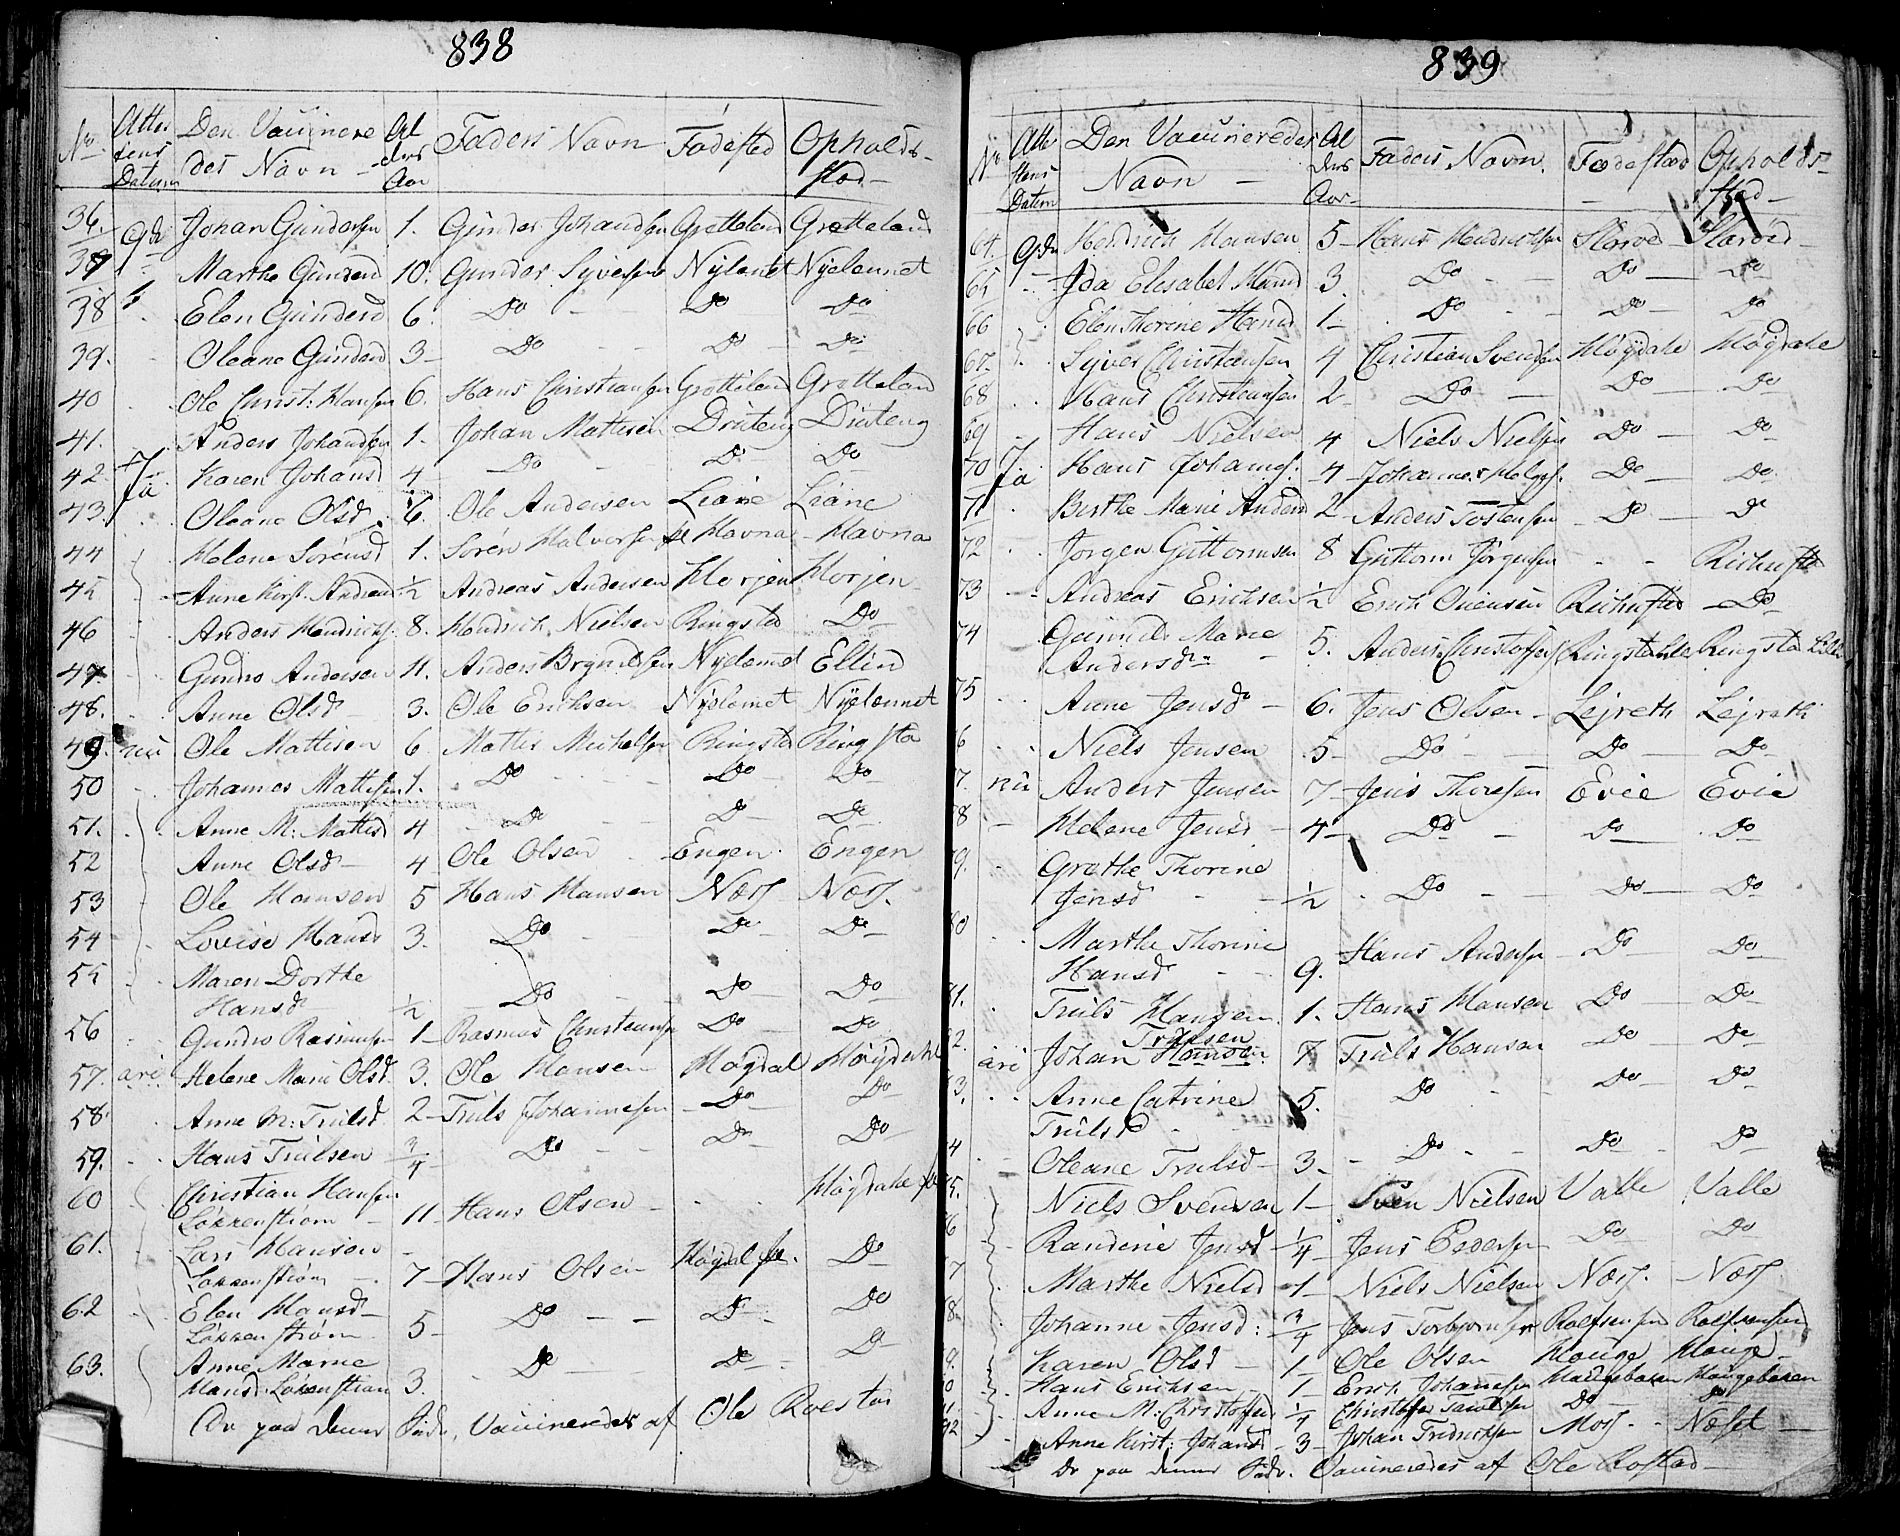 838
No. Attestens Datum Den Vaccineredes Navn Alders Aar Faders Navn Fødested Opholdssted
36. 9de Johan Gundersen 1. Gunder Johandsen Grotteland Grotteland
37 Marthe Gundersd 10. Gunder Syversen Nylænet Nyelænnet
38 Elen Gundersd 6. Do Do Do
39. Oleane Gundersd 3 Do Do Do
40 Ole Christ: Hansen 6. Hans Christiansen Grotteland Grotteland
41. Anders Johandsen 1. Johan Mattisen Drateng Drateng
42. Ja Karen Johansd 4 Do Do Do
43. Oleane Olsd 6. Ole Andersen Liane Liane
44 Helene Sørensd 1. Søren Halvorsen Havna Havna
45 Anne Kirst. Andreasd 1/2 Andreas Andersen Horjen Horjen
46 Anders Hendrichs. 8. Hendrich Nielsen Ringstad Do
47 Gundro Andersen 11. Anders Brynildsen Nyelænnet Ellin
48. Anne Olsd 3. Ole Erichsen Nylænet Nyelænnet
49. nü Ole Mattisen 6 Mattis Michelsen Ringsta Ringsta
50 Johannes Mattisen 1. Do Do Do
51. Anne M: Mattisd 4 Do Do Do
52 Anne Olsd 4 Ole Olsen Engen Engen
53 Ole Hansen 5 Hans Hansen Næss Næss.
54 Lovise Hansd 3. Do Do Do
55 Maren Dorthe
Hansd 1/2 Do Do Do
56 Gundro Rasmusen 1 Rasmus Christiansen Do Do
57. ari Helene Marie Olsd. 3. Ole Hansen Høgdal Høydahl
58. Anne M: Trulsd. 2 Truls Johannesen Do Do
59. Hans Trulsen 3/4 Do Do Do
60 Christian Hansen
Løkkenstrøm 11 Hans Olsen Høgdahl
61. Lars Hansen
Løkkenstrøm 7 Hans Olsen Høgdal Do
62 Elen Hansd
Løkkenstrøm 5 Do Do Do
63. Anne Marne
Hansd. Løkenstrøm 3. Do Do Do
Er paa denne Side, Vaccineredes af Ole Roestad
839
No Attestens Datum Den Vaccineredes Navn Alders Aar Faders Navn. Fødested Opholdssted
64. 9de Hendrich Hansen 5 Hans Hendrichsen Skarød Skarød
65 Ida Elesabet Hansd 3 Do Do Do
66 Elen Thorine Hansd 1 Do Do Do
67. Syver Christiansen 4 Christian Svendsen Høgdahl Høgdahl
68 Hans Christiansen 2 Do Do Do
69 Hans Nielsen 4 Niels Nielsen Do Do
70 Ja Hans Johannes. 4 Johannes Helges. Do Do
71 Berthe Marie Andersd 2 Anders Tostensen Do Do
72 Jørgen Guttormsen 8 Guttorm Jørgensen
73 Andreas Erichsen 1/2 Erich Do
74 Gunnild Marie
Andersdr 5. Anders Christophers. Ringstad Lille Ringsta Lille
75 Anne Jensd 6. Jens Olsen Lejreth Lejreth
6 Niels Jensen 5 Do Do Do
7. nü Anders Jensen 7 Jens Thoresen Evie Evie
8 Helene Jensd 4 Do Do Do
9. Grethe Thorine
Jensd 1/2 Do Do Do
80 Marthe Thorine
Hansd 9. Hans Andersen Do Do
81. Truls Hansen 1. Hans Hansen Do Do
2. ari Johan Trulsen Hansen 7 Truls Hansen Do Do
3. Anne Catrine
Trulsd 5. Do Do Do
4 Oleane Trulsd 3. Do Do Do
5. Niels Svensen 1 Sven Nielsen Valle Valle
6 Randine Jensd 1/4 Jens Pedersen Do Do
7 Marthe Nielsd 1 Niels Nielsen Næss. Næss
8. Johanne Jensd: 3/4 Jens Torbjornsen
9. Karen Olsd 1 Ole Olsen Hauge Hauge
0 Hans Erichsen 1 Erich Johannesen Haugebaken Haugebaken
1 Anne M: Christoffersd 1/4 Christoffer Do Do
92 Anne Kirst: Johansd 3 Johan Fridrichsen Moss Næset
Er paa denne Side. Vaccineredes af Ole Rostad